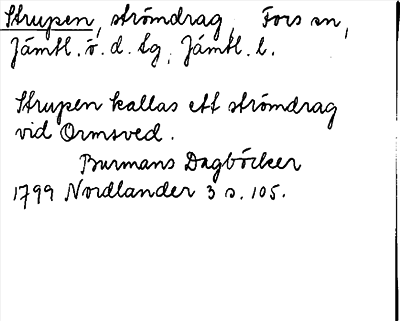 Strupen, strömdrag, Fors sn,
Jämtl. ö. d. tg, Jämtl. l.
Strupen kallas ett strömdrag
vid Ormsved.
Burmans Dagböcker
1799 Nordlander 3 s. 105.